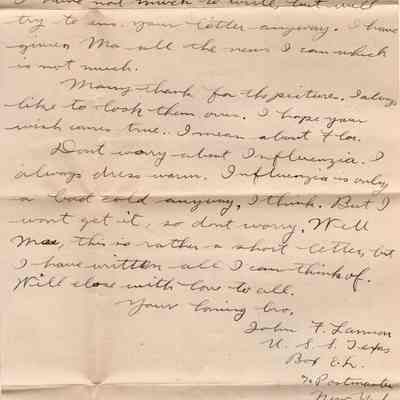 I have not much to write, but will
try to ans. your letter anyway. I have
given Ma all the news I can which
is not much.
Many thank for the pictures. I always
like to look them over. I hope your
wish comes true. I mean about Flo.
Dont worry about Influenzia. I
always dress warm. Influenzia is only
a bad cold anyway, I think. But I
wont get it, so dont worry. Well
Mae, this is rather a short letter, but
I have written all I can think of.
Will close with love to all.
Your loving bro,
John F. Lannon
U. S. S. Texas
Box
% Postmaster
New York